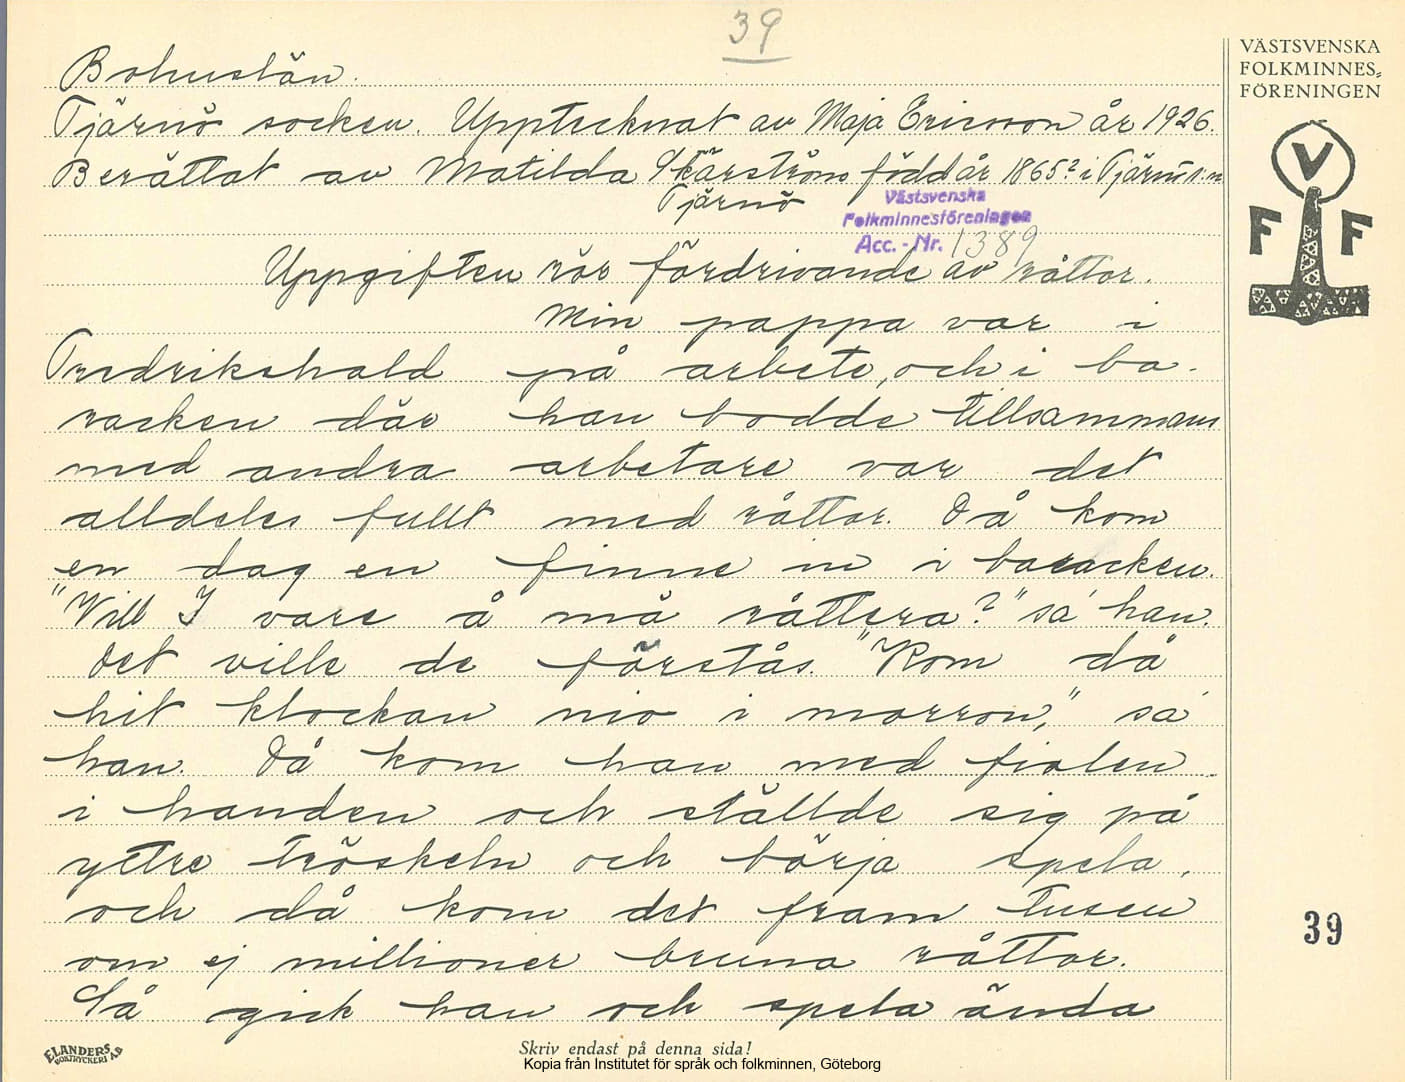 39
Bohuslän.
Tjärnö socken. Upptecknat av Maja Ericsson år 1926.
Berättat av Matilda Skärström född år 1865? i Tjärnö s:n
Tjärnö
Västsvenska
Folkminnesföreningen
Acc. - Nr. 1389
Uppgiften rör fördrivande av råttor.
Min pappa var i
Fredrikshald på arbete, och i ba-
racken där han bodde tillsammans
med andra arbetare var det
alldeles fullt med råttor. Då kom
en dag en finne in i baracken.
"Vill I vare å må råttera?" sa' han.
Det ville de förstås. "Kom då
hit klockan nio i morron," sa'
han. Då kom han med fiolen
i handen och ställde sig på
yttre tröskeln och börja spela,
och då kom det fram tusen
om ej millioner bruna råttor.
Så gick han och spela ända
VÄSTSVENSKA
FOLKMINNES-
FÖRENINGEN
V
F F
39
ELANDERS
BOKTRYCKERI A.B
Skriv endast på denna sida!
Kopia från Institutet för språk och folkminnen, Göteborg